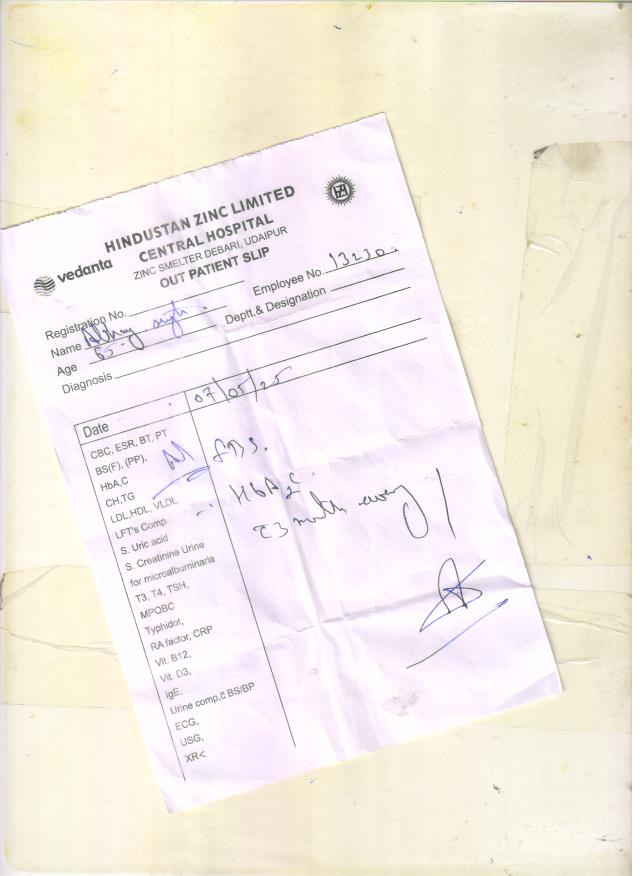 HINDUSTAN ZINC LIMITED
CENTRAL HOSPITAL
vedanta
ZINC SMELTER DEBARI, UDAIPUR
OUT PATIENT SLIP
Registration No.
Employee No.
Name
Deptt.& Designation
Age 65
Diagnosis
Date 07/05/25
CBC, ESR, BT, PT
BS(F), (PP),
HbA,C
CH,TG
LDL,HDL, VLDL
LFT's Comp.
S. Uric acid
S. Creatinine Urine
for microalbuminaria
T3, T4, TSH,
MPQBC
Typhidot,
RA factor, CRP
Vit. B12,
Vit. D3,
IgE,
Urine comp,c̄ BS/BP
ECG,
USG,
XR<
HbA
3 month every